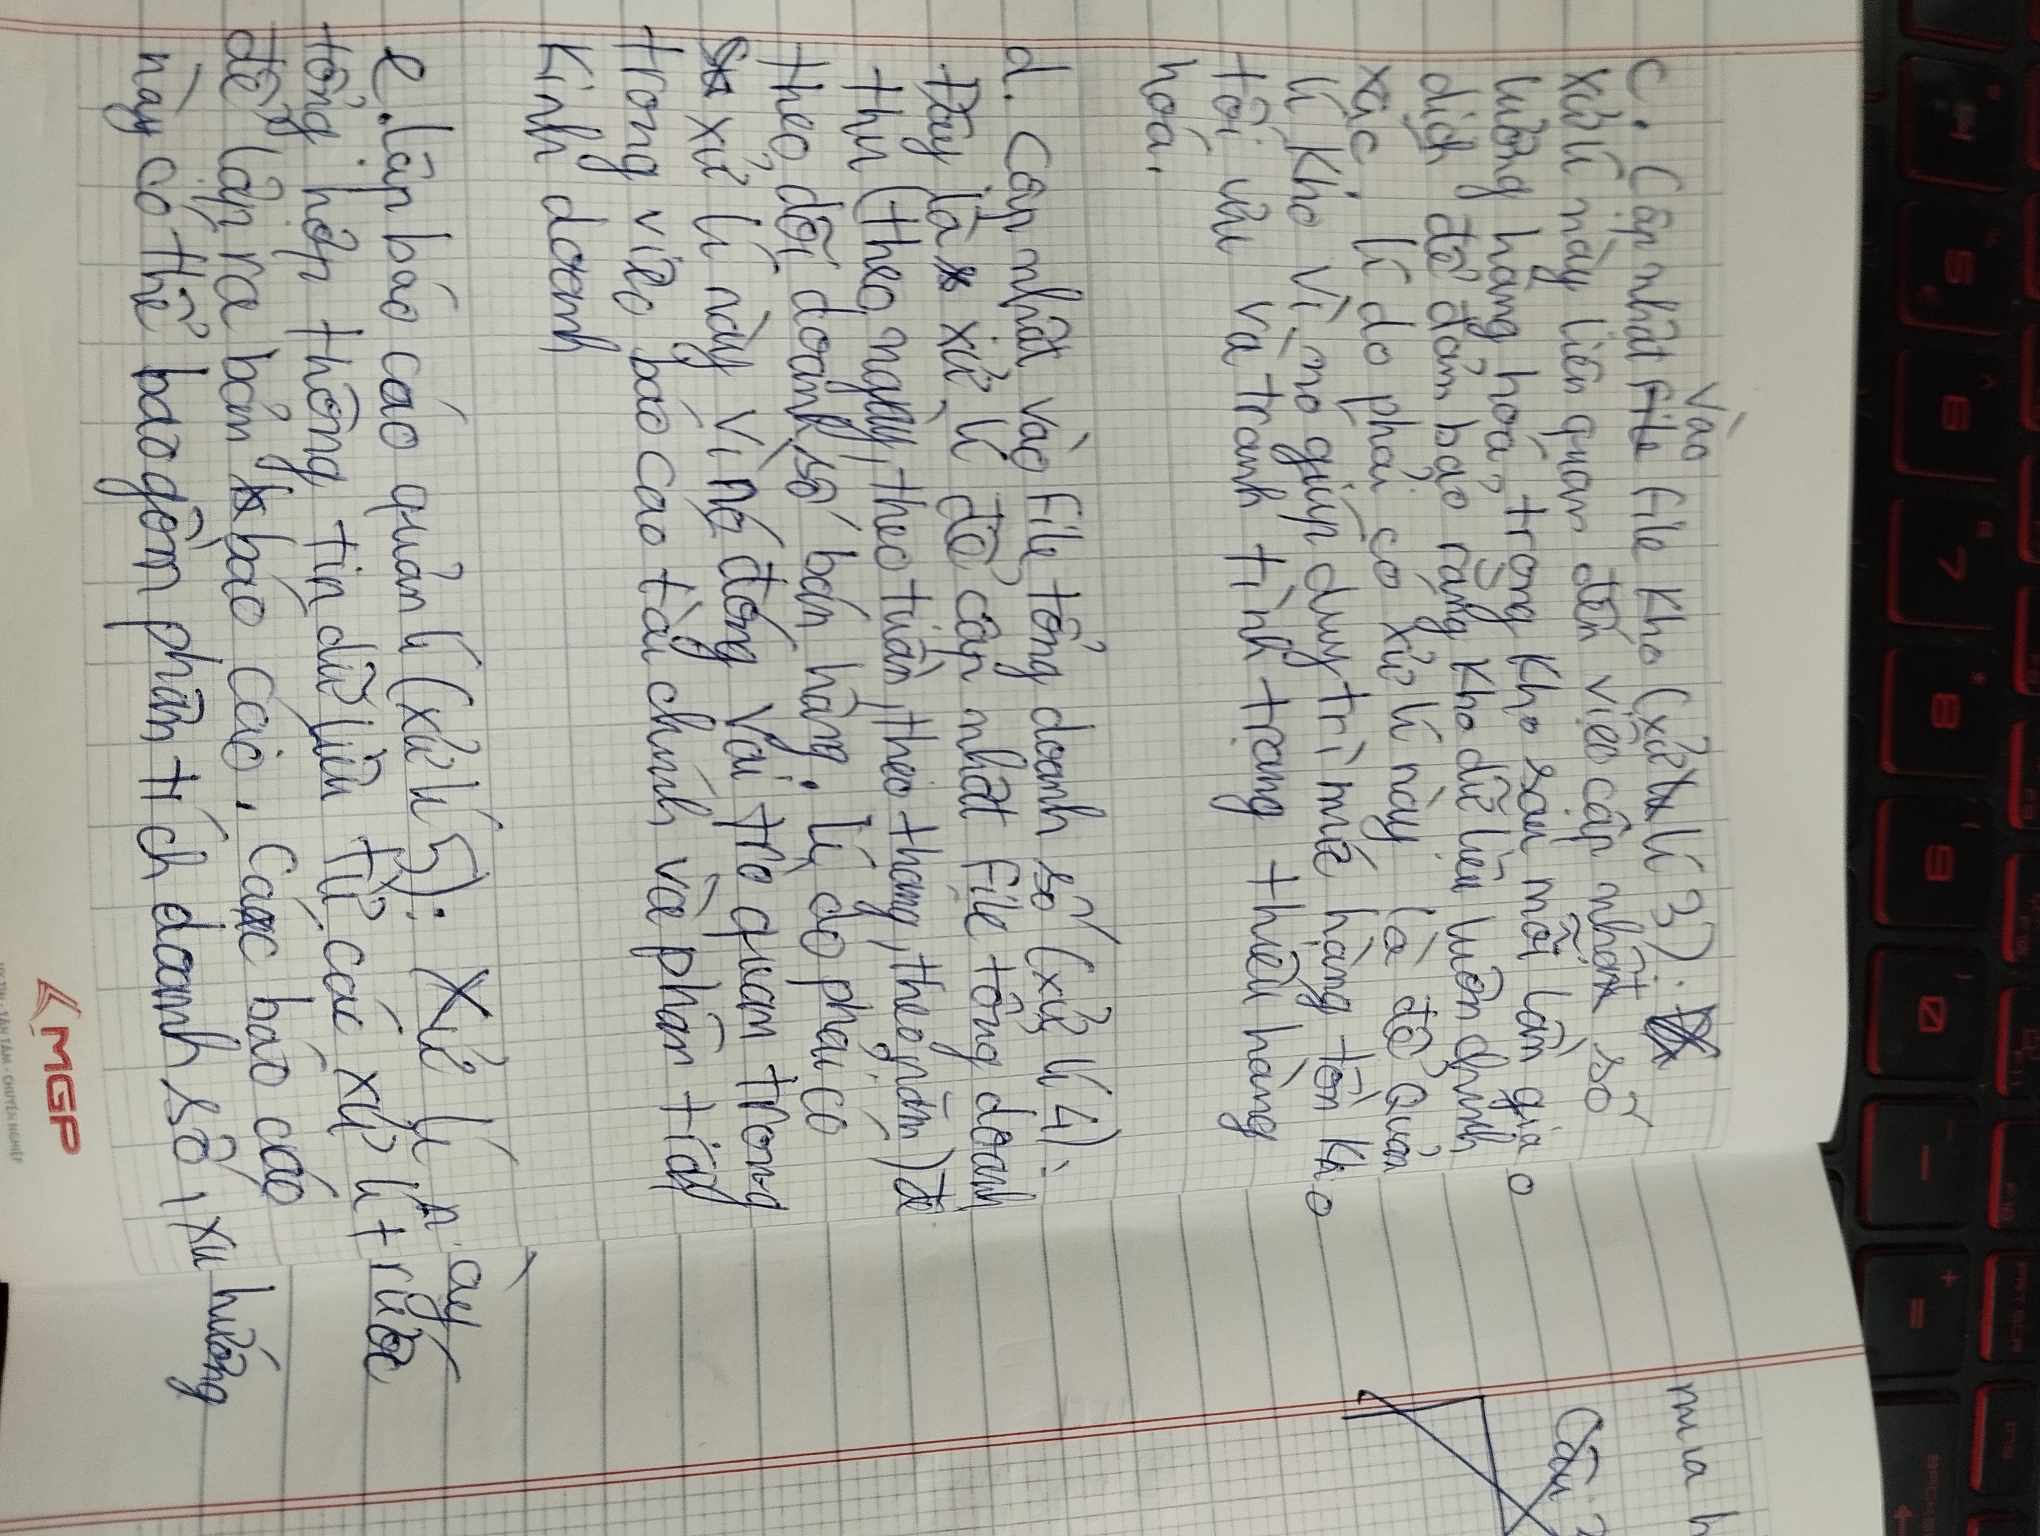 4 5 6 7 8 9 0 - + =
F10 F11 F12 PRT SCR INS
vào
c. Cập nhật file file kho (xử lí 3):
xử lí này liên quan đến việc cập nhật số
lượng hàng hoá, trong kho sau mỗi lần giao
dịch để đảm bảo rằng kho dữ liệu luôn chính
xác. lí do phải có xử lí này là để quản
lí kho vì nó giúp duy trì mức hàng tồn kho
tối ưu và tránh tình trạng thiếu hàng
hoá.
d. Cập nhật vào file tổng doanh số (xử lí 4):
Đây là xử lí để cập nhật file tổng doanh
thu (theo ngày, theo tuần, theo tháng, theo năm) để
theo dõi doanh số bán hàng. lí do phải có
xử lí này vì nó đóng vai trò quan trong
trong việc báo cáo tài chính và phân tích
kinh doanh
e. lập báo cáo quản lí (xử lí 5): Xử lí này
tổng hợp thông tin dữ liệu từ các xử lí trước
để lập ra bản báo cáo. Các báo cáo
này có thể bao gồm phân tích doanh số, xu hướng
mua h
Câu
MGP
UY TÍN - TẬN TÂM - CHUYÊN NGHIỆP